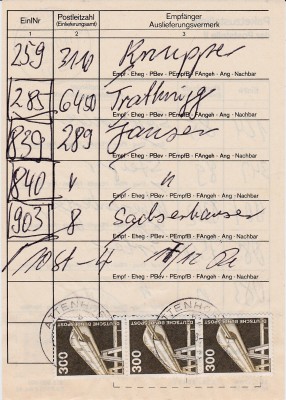 EinlNr Postleitzahl (Einlieferungsamt) Empfänger Auslieferungsvermerk
1 2 3
259 3110 Knupper
Empf - Eheg - PBev - PEmpfB - FAngeh - Ang - Nachbar
285 6490
Empf - Eheg - PBev - PEmpfB - FAngeh - Ang - Nachbar
839 289 Janser
Empf - Eheg - PBev - PEmpfB - FAngeh - Ang - Nachbar
840 " "
Empf - Eheg - PBev - PEmpfB - FAngeh - Ang - Nachbar
903 8 Sachsenhauser
Empf - Eheg - PBev - PEmpfB - FAngeh - Ang - Nachbar
Empf - Eheg - PBev - PEmpfB - FAngeh - Ang - Nachbar
300 DEUTSCHE BUNDESPOST
300 DEUTSCHE BUNDESPOST
300 DEUTSCHE BUNDESPOST